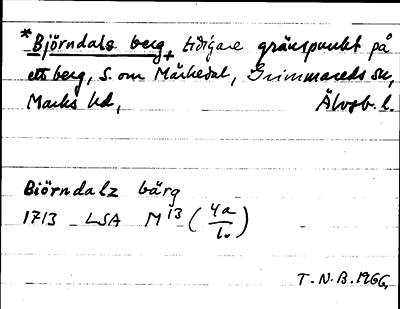 *Björndals berg, + tidigare gränspunkt på
ett berg, S. om Märkedal, Grimmareds sn,
Marks hd, Älvsb. l.
Biörndalz bärg
1713 LSA M 13 (4a/1.)
T.N.B. 1966.